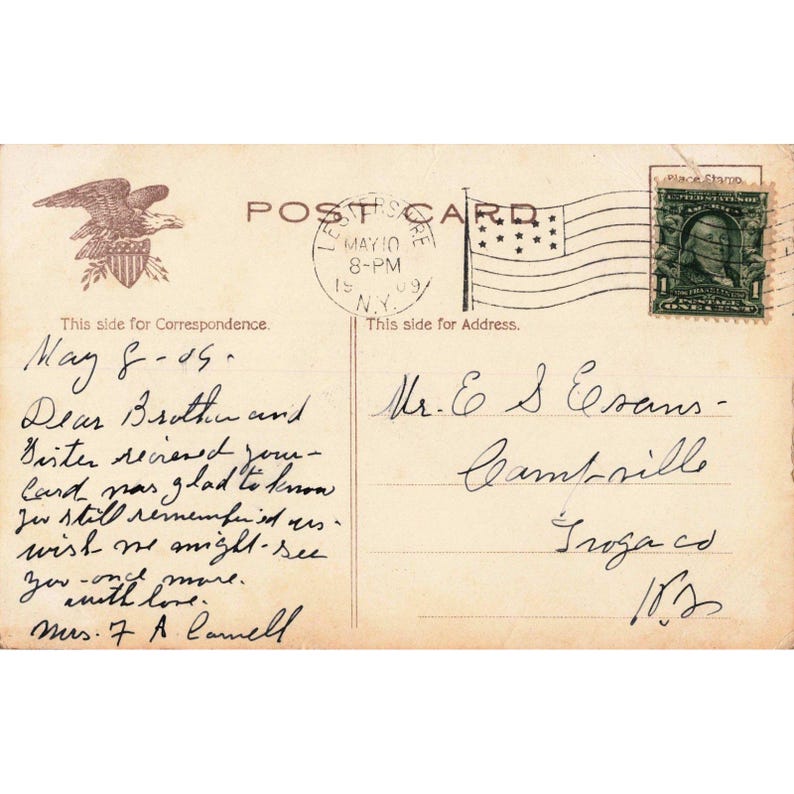 Place Stamp
POST CARD
LESTERSHIRE
MAY 10
8-PM
1909
N.Y.
UNITED STATES OF
AMERICA
1 1
FRANKLIN
POSTAGE
ONE CENT
This side for Correspondence.
This side for Address.
May 8 - 09.
Dear Brother and
Sister recieved your
Card was glad to know
you still remembered us.
wish we might see
you once more.
with love.
Mrs. F A
Mr. E S Evans
Campville
Tioga co
N.Y.